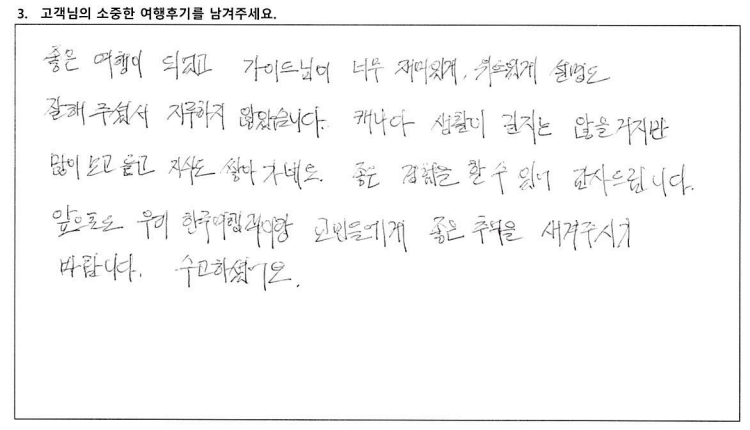 3. 고객님의 소중한 여행후기를 남겨주세요.
좋은 여행이 되었고 가이드님이 너무 재미있게, 위트있게 설명도
잘해 주셔서 지루하지 않았습니다. 캐나다 생활이 길지는 않을거지만
많이 보고 듣고 지식도 쌓아 가네요. 좋은 경험을 할 수 있어 감사드립니다.
앞으로도 우리 한국 교민들에게 좋은 추억을 새겨주시기
바랍니다. 수고하셨어요.